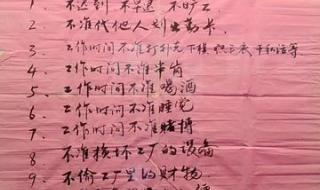 1、不迟到 不早退 不旷工
2、不准代他人划出勤卡、
3、工作时间不准打扑克下棋 织毛衣 干私活等
4、工作时间不准串岗
5、工作时间不准喝酒
6、工作时间不准睡觉
7、工作时间不准赌搏
8、不准损坏工厂的设备
9、不偷工厂里的财物